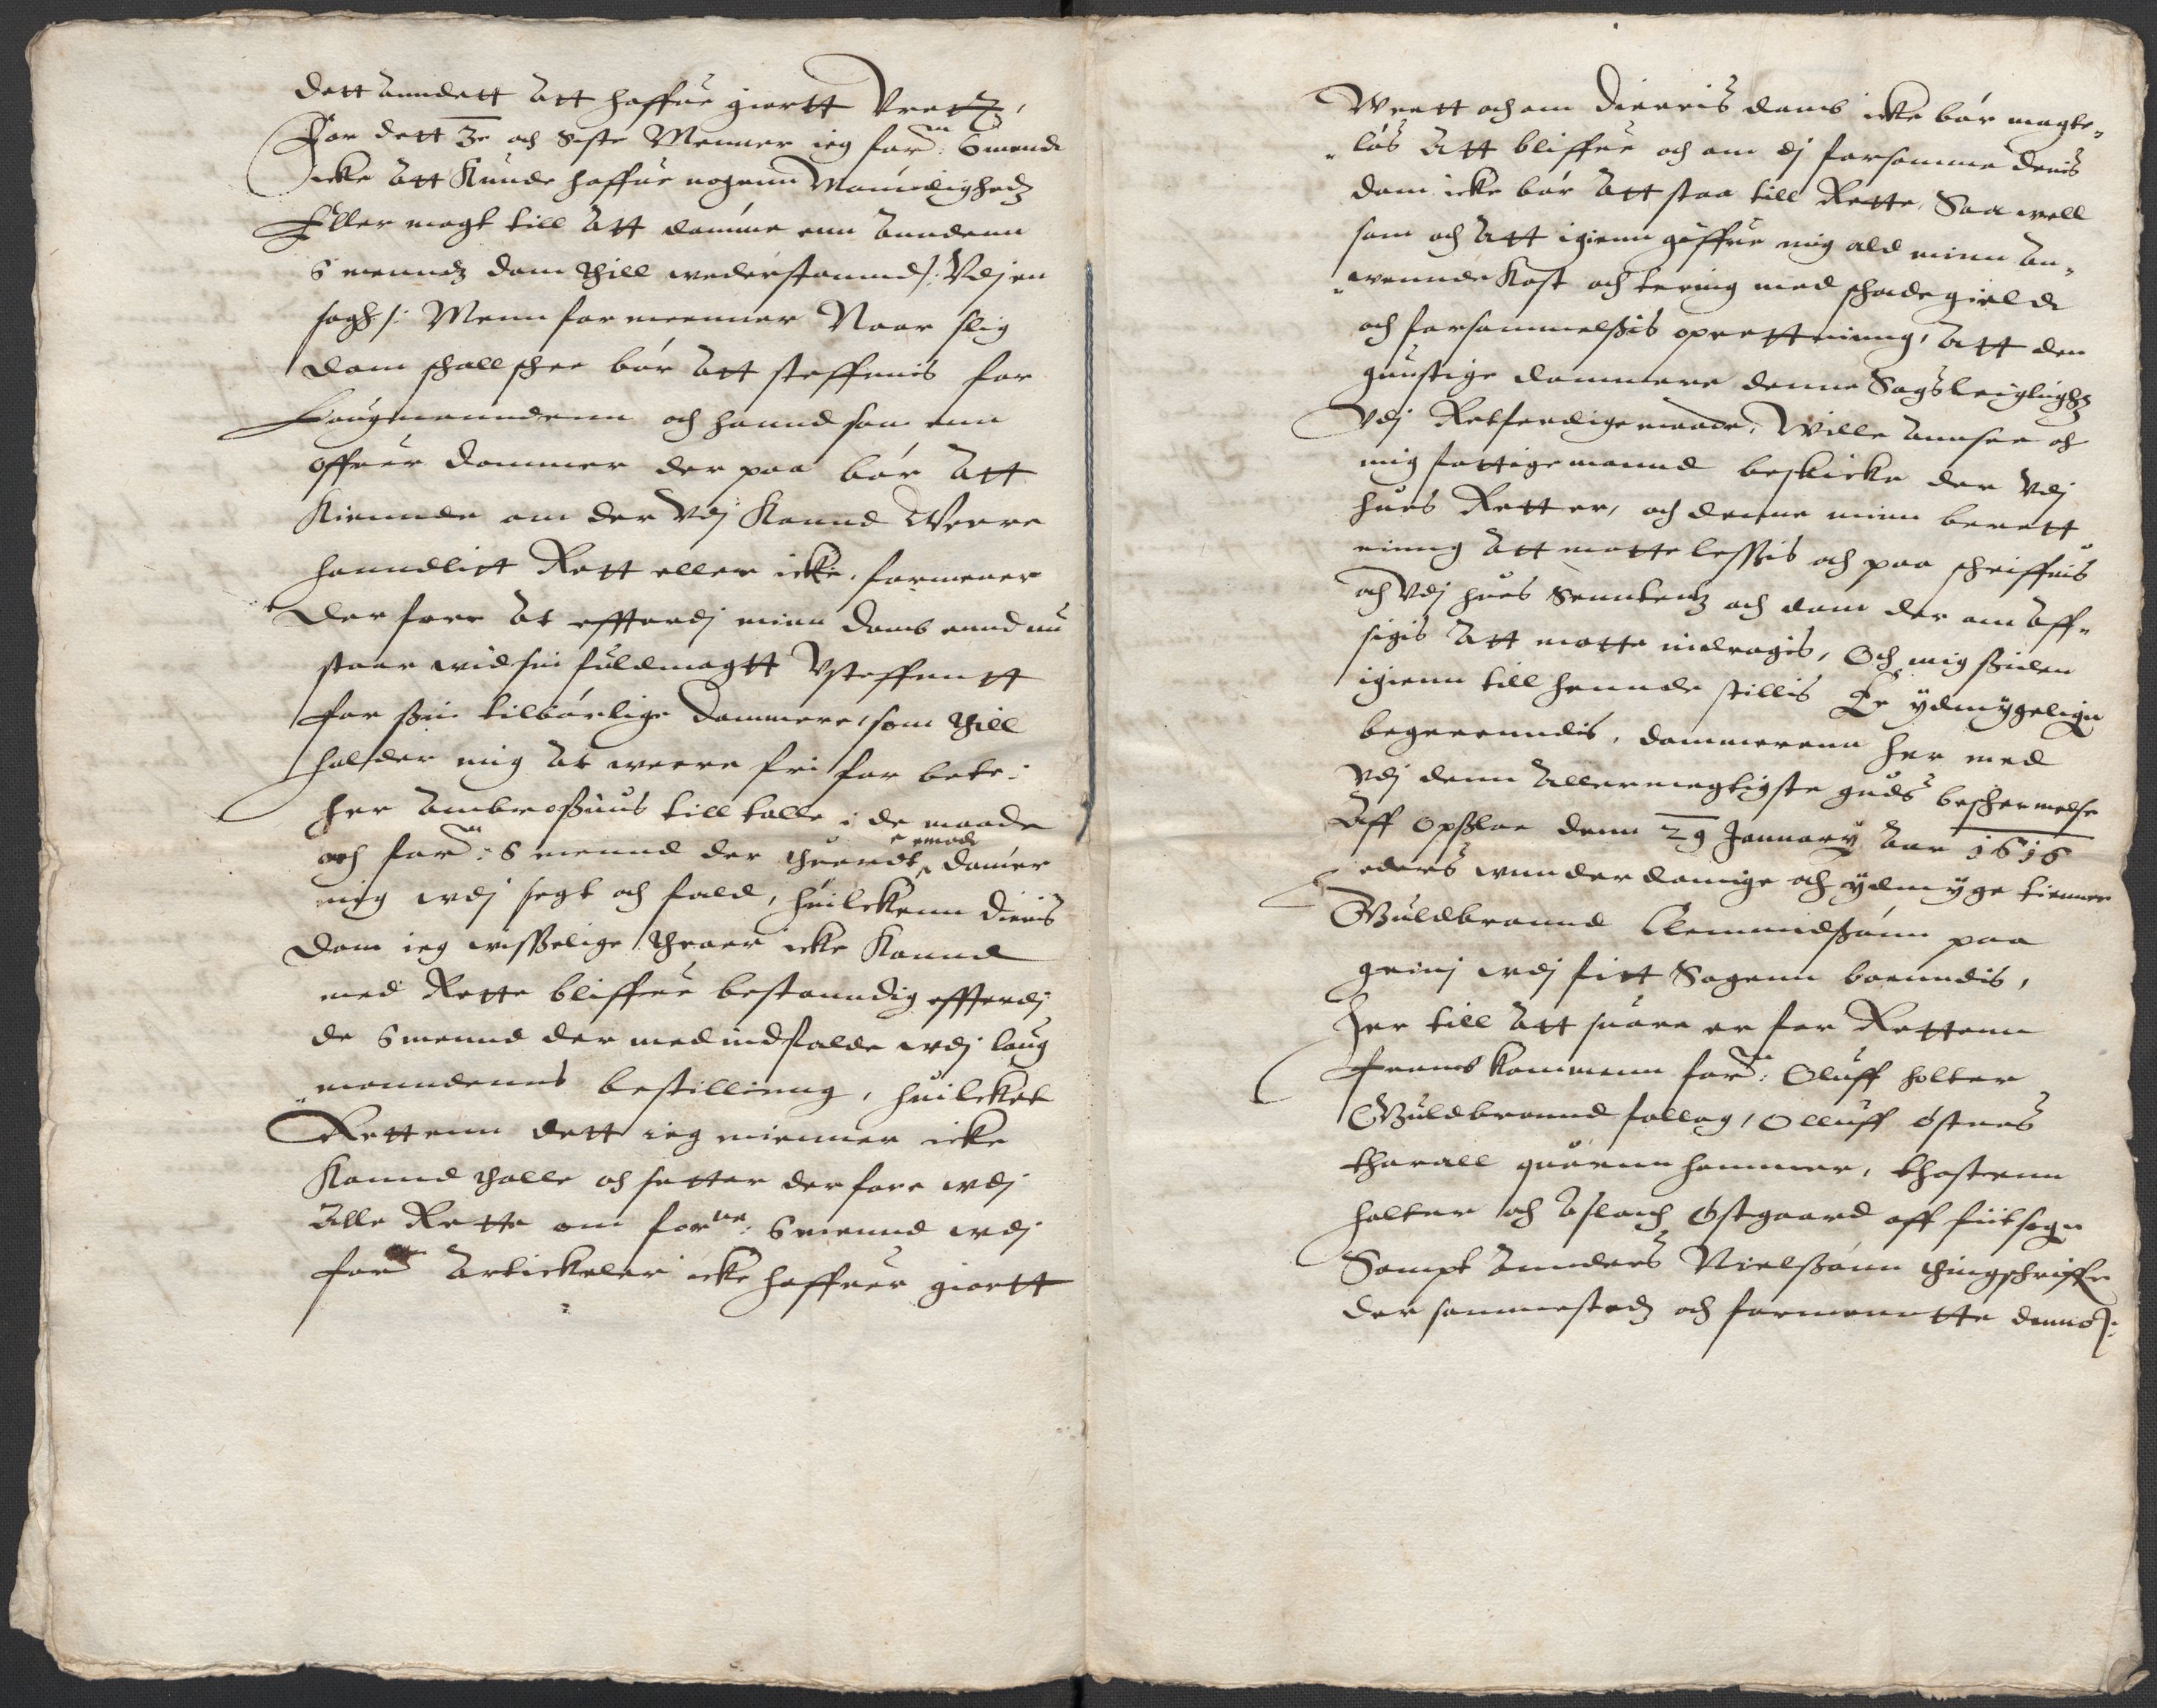 dett anndett att haffue giortt Vrett,
For dett 3e och Siste Menner ieg for:ne 6 mend
icke att Kunde haffue nogenn Mÿndighedz
Eller magt till att dømme enn anndenn
6 menndz dom thill wederstannd /: Vdj en
sagh :/ Menn formeenner Naar slig
dom schall schee bør att steffnis for
Laugmanndenn och hannd som enn
offuer dommer der paa bør att
Kiennde om der Vdj Kannd Werre
hanndlitt Rett eller icke, formener
der fore at effterdj minn domb ennd nu
staar wid sin fuldmagtt Vsteffnett
for ssin tilbørlige dommere, som thill
holder mig at werre fri for bete:
her Ambrossius till talle i de maade
och for:ne 6 mennd der thuerdt emod dømer
mig vdj segt och fald, huilckenn dieris
dom ieg wisselige throer icke Kannd
med Rette bliffue bestanndig effterdj
de 6 mennd der med indfalde vdj laug
manndenns bestillinng, huilcket
Rettenn dett ieg mienner icke
Kannd thalle och setter der fore vdj
alle Rette om for:ne 6 mennd vdj
for:ne Artickeler icke haffuer giortt
Wrett och om dierris domb icke bør magte-
løs att bliffue och om dj forsamme deris
dom icke bør att staa till Rette, Saa well
som och att igienn gøffue mig ald minn an-
wennde Kost och tering med schadegield
och forsømmelssis oprettninng, att den
gunstige dommere denne Sags leiglighedz
Vdj Retferdige maade, Wille annsee och
mig fattige mannd beskicke der Vdj
hues Rett er, och denne minn berett
ninng att motte lessis och paa schriffuis
och Vdj hues Senntentz och dom der om aff-
sigis att motte indragis, Och mig ssiden
igienn till hennde stillis Er ydmygelign
begerenndis, dommerenn her med
Vdj denn allermegtigste guds beschermelse
Aff Opsloe denn 29 Januarÿ Aar 1616
eders wnnderdanige och ydmyge tienner
Guldbrannd Clemmidssønn paa
grinj vdj fitt Sogenn boenndis,
Her till att suare er for Rettenn
frembkommenn for:ne Oluff holter
Guldbrannd falleg, Olluff østnes
thorall quernn hammer, thostenn
holter och Aslach Østgaard aff fiitsogn
Sampt Annders Nielssønn thingschriffr
der sammestedz och formennte dennd :/